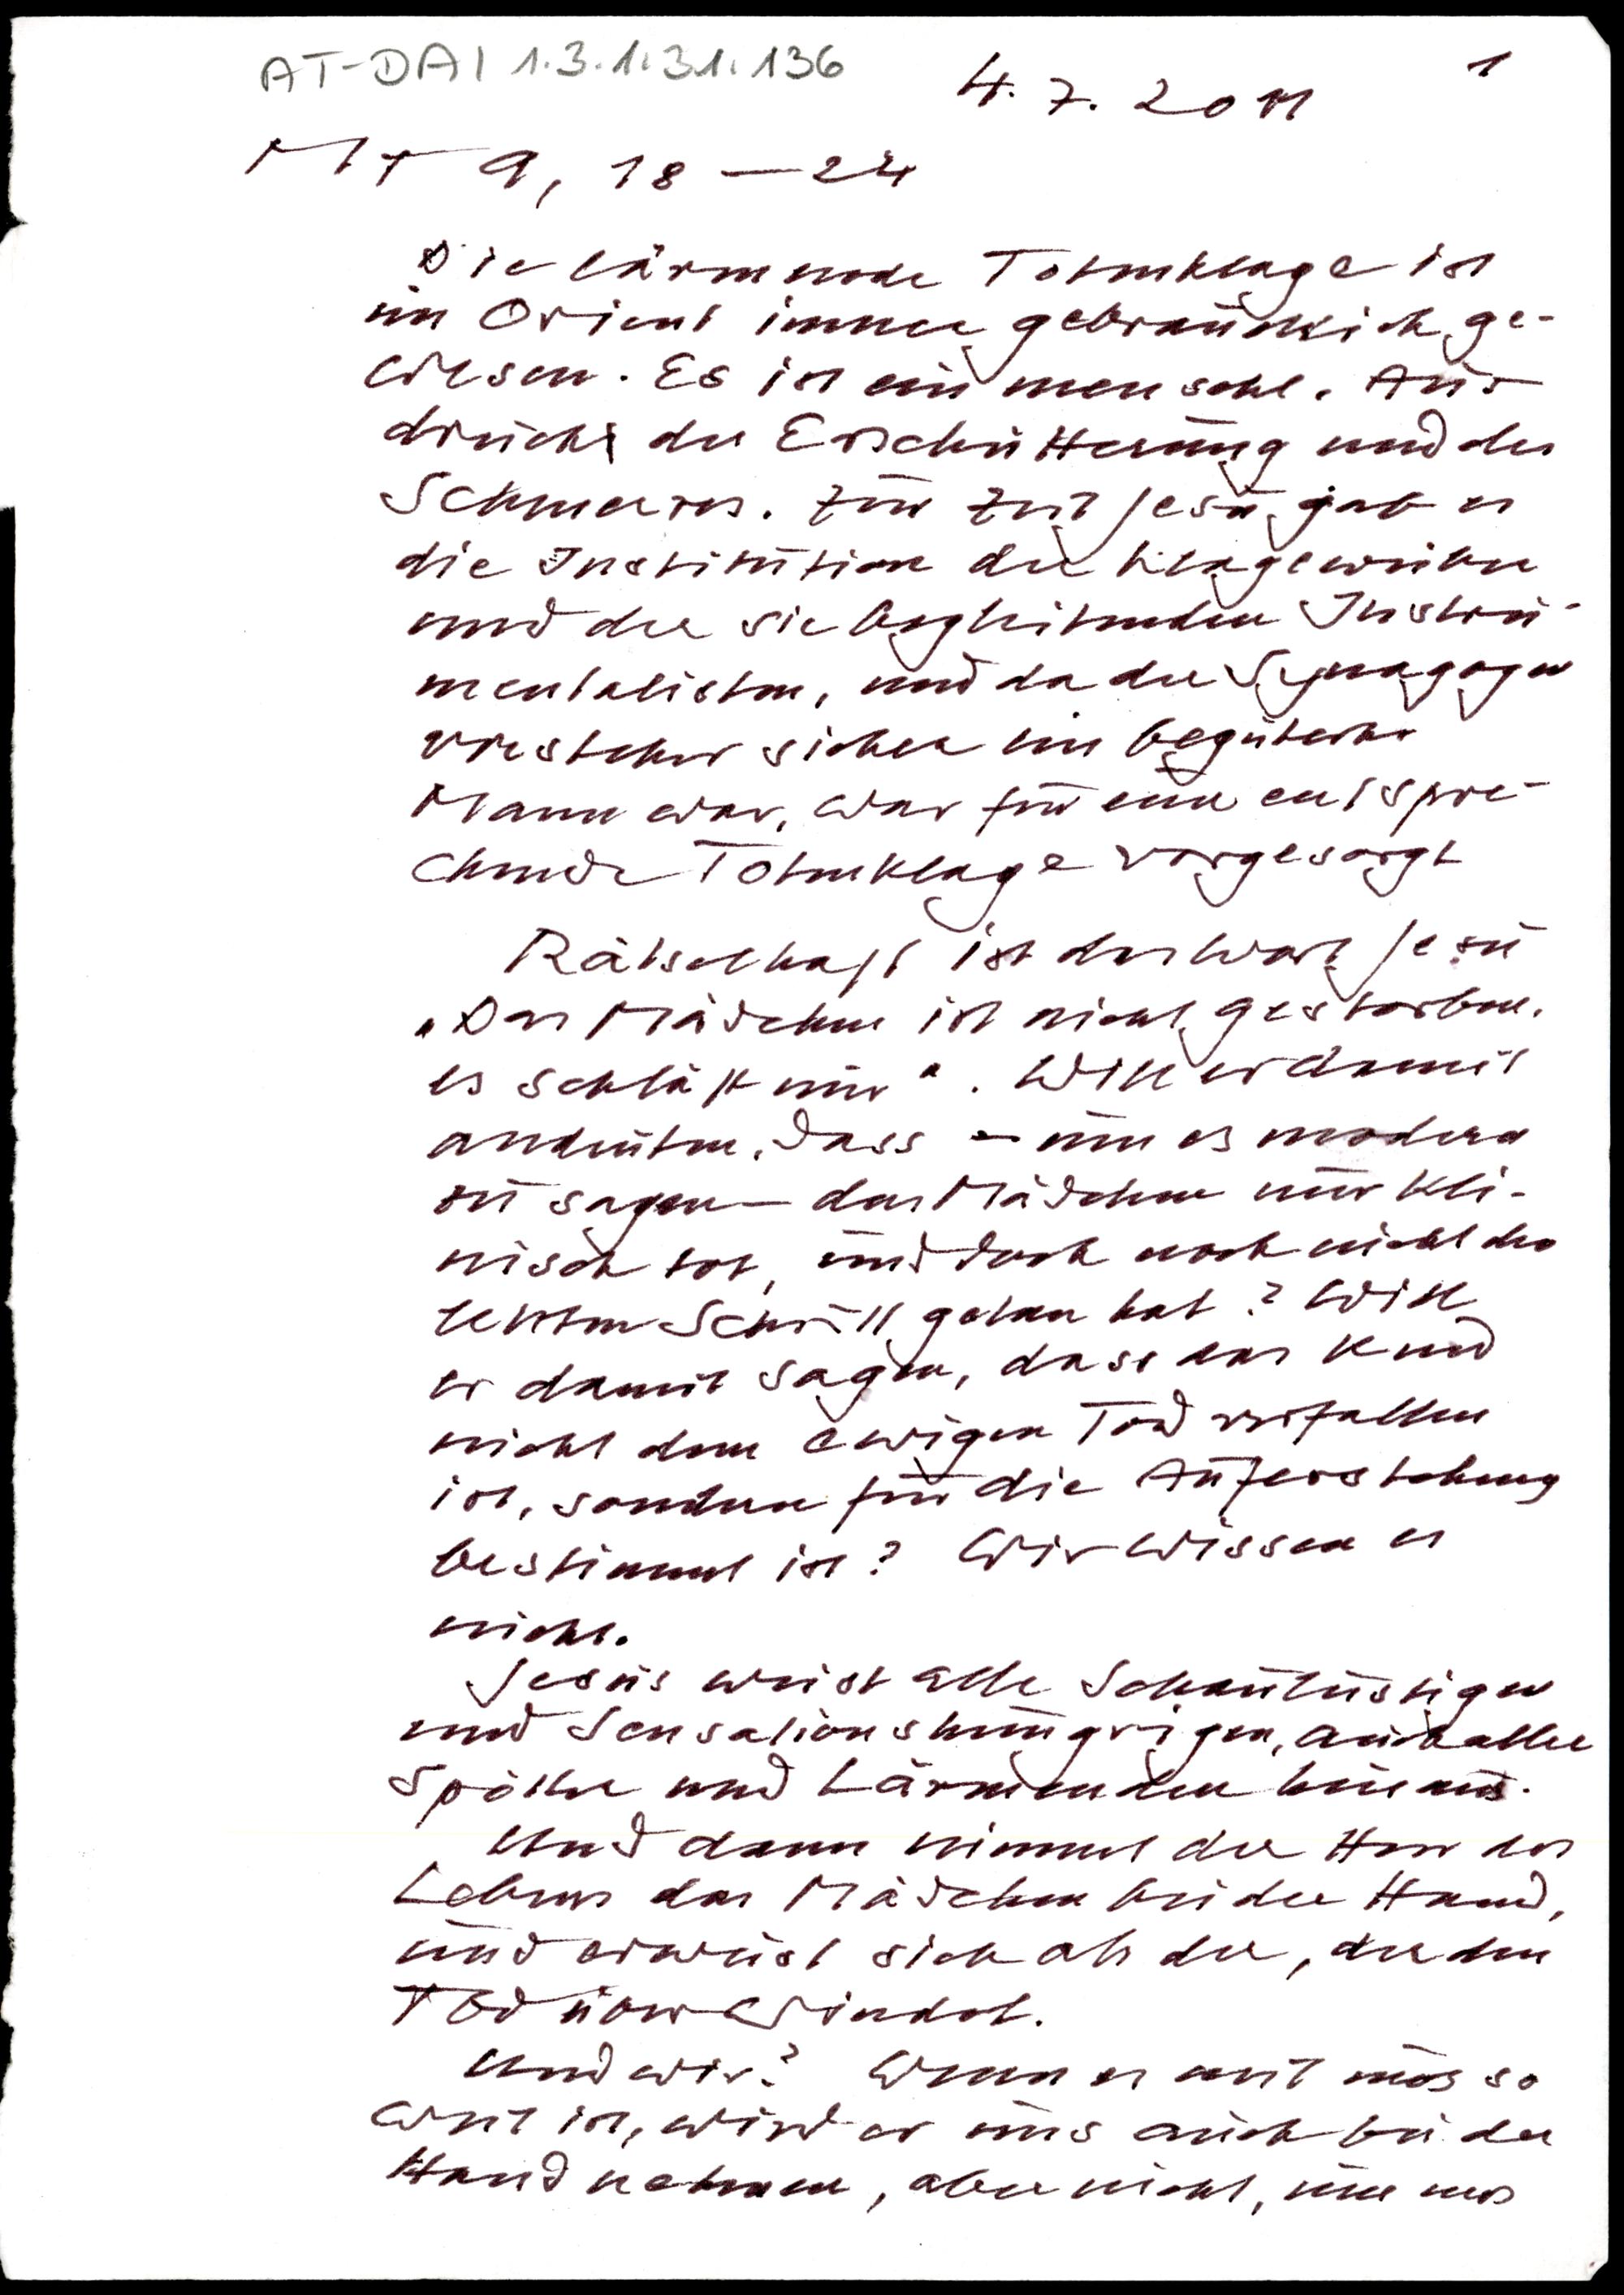 AT-DAI 1.3.1.31.136
4.7.2011
1
MT 9, 18 – 24
Die lärmende Totenklage ist
im Orient immer gebräuchlich ge-
wesen. Es ist ein menschl. Aus-
druck der Erschütterung und des
Schmerzes. Zur Zeit Jesu gab es
die Institution der Klageweiber
und der sie begleitenden Instru-
mentalisten, und da der Synagogen
vorsteher sicher ein begüterter
Mann war, war für eine entspre-
chende Totenklage vorgesorgt
Rätselhaft ist das Wort Jesu
"Das Mädchen ist nicht gestorben,
es schläft nur". Will er damit
andeuten, dass – um es modern
zu sagen – das Mädchen nur kli-
nisch tot, und doch noch nicht den
letzten Schritt getan hat? Will
er damit sagen, dass das Kind
nicht dem ewigen Tod verfallen
ist, sondern für die Auferstehung
bestimmt ist? Wir wissen es
nicht.
Jesus weist alle Schaulustigen
und Sensationshungrigen, auch alle
Spötter und Lärmenden hinaus.
Und dann nimmt der Herr des
Lebens das Mädchen bei der Hand,
und erweist sich als der, der den
Tod überwindet.
Und wir? Wenn es mit uns so
weit ist, wird er uns auch bei der
Hand nehmen, aber nicht, um uns